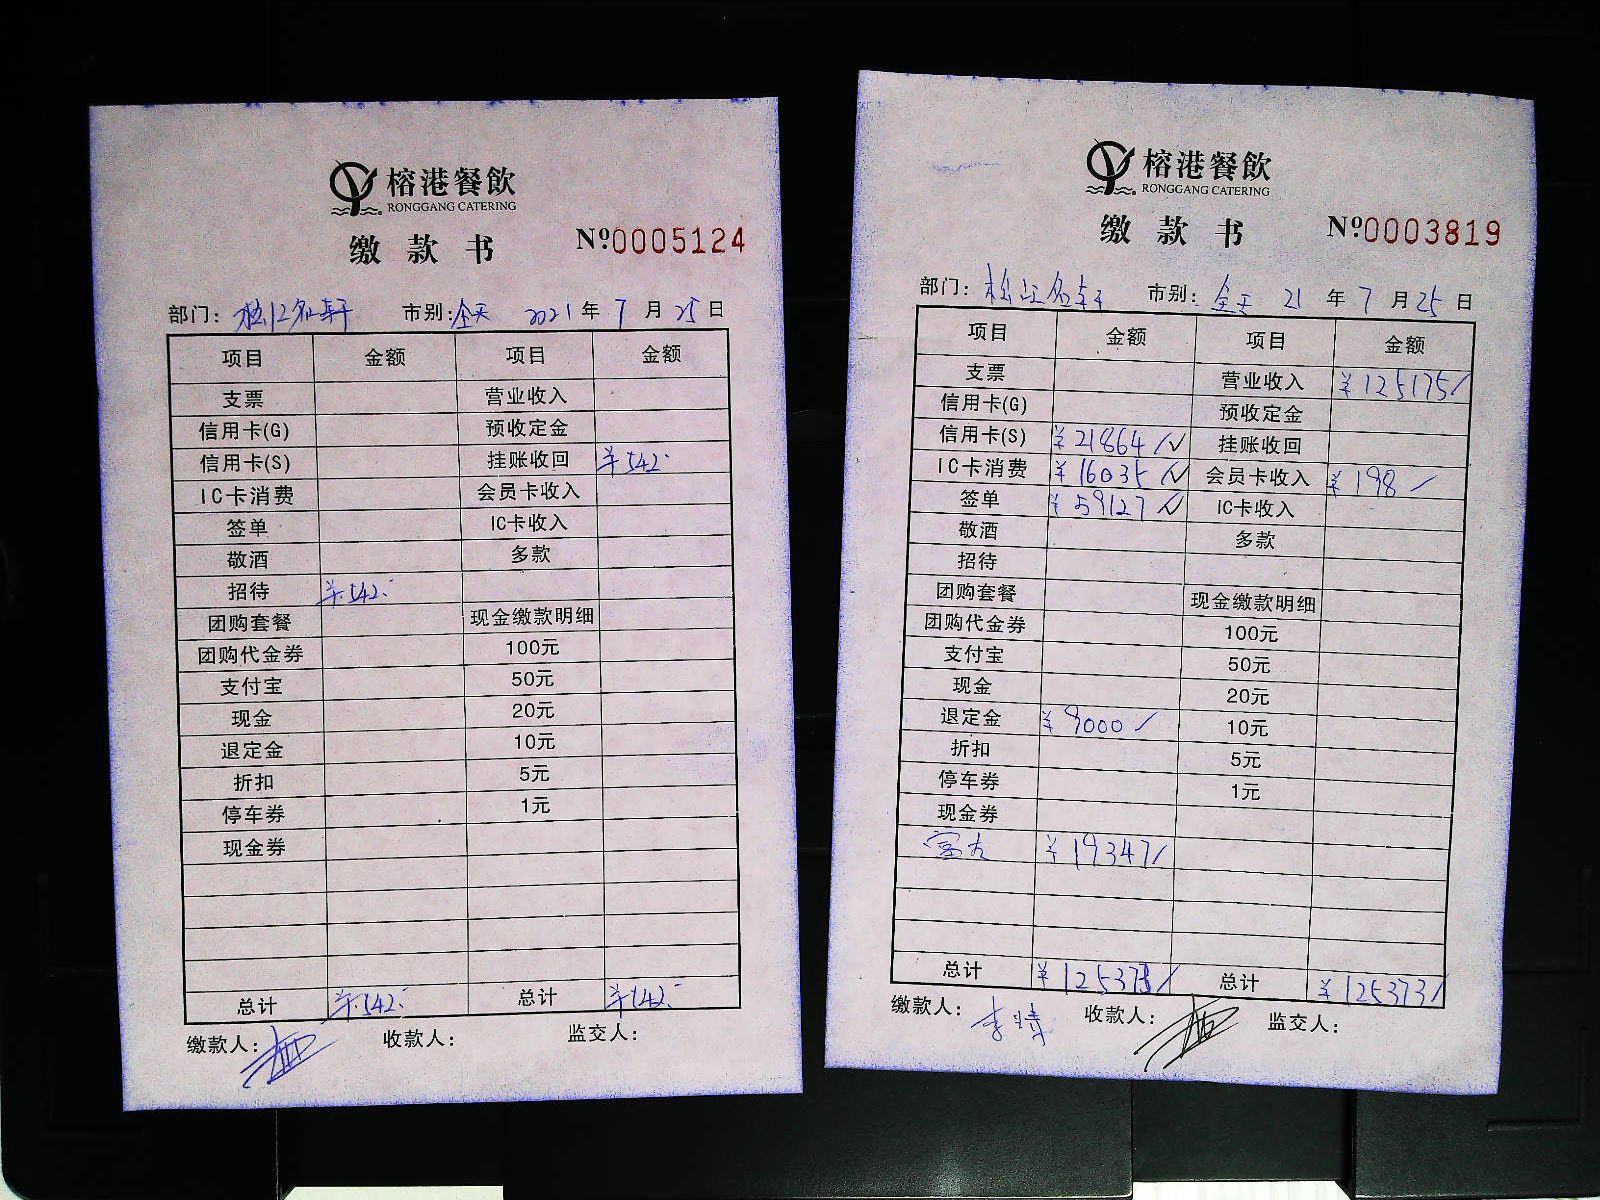 榕港餐飲
RONGGANG CATERING
缴款书 №0005124
部门: 松江名轩 市别: 全天 2021年7月25日
项目 金额 项目 金额
支票 营业收入
信用卡(G) 预收定金
信用卡(S) 挂账收回 ¥542.-
IC卡消费 会员卡收入
签单 IC卡收入
敬酒 多款
招待 ¥542.-
团购套餐 现金缴款明细
团购代金券 100元
支付宝 50元
现金 20元
退定金 10元
折扣 5元
停车券 1元
现金券
总计 ¥542.- 总计 ¥542.-
缴款人: 收款人: 监交人:
榕港餐飲
RONGGANG CATERING
缴款书 №0003819
部门: 松江名轩 市别: 全天 21年7月25日
项目 金额 项目 金额
支票 营业收入 ¥125175/
信用卡(G) 预收定金
信用卡(S) ¥21864/✓ 挂账收回
IC卡消费 ¥16035/✓ 会员卡收入 ¥198/
签单 ¥59127/✓ IC卡收入
敬酒 多款
招待
团购套餐 现金缴款明细
团购代金券 100元
支付宝 50元
现金 20元
退定金 ¥9000/ 10元
折扣 5元
停车券 1元
现金券
¥19347/
总计 ¥125373/ 总计 ¥125373/
缴款人: 李 收款人: 监交人: